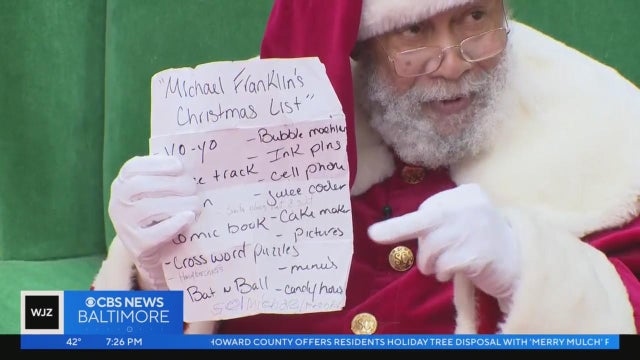 "Michael Franklin's
Christmas List"
- Yo-yo - Bubble
track - Ink pins
- cell phone
Comic book - Cake maker
- Pictures
- Crossword Puzzles
- menu's
Bat n Ball - candy
WJZ CBS NEWS
BALTIMORE
42° 7:26 PM HOWARD COUNTY OFFERS RESIDENTS HOLIDAY TREE DISPOSAL WITH 'MERRY MULCH' F